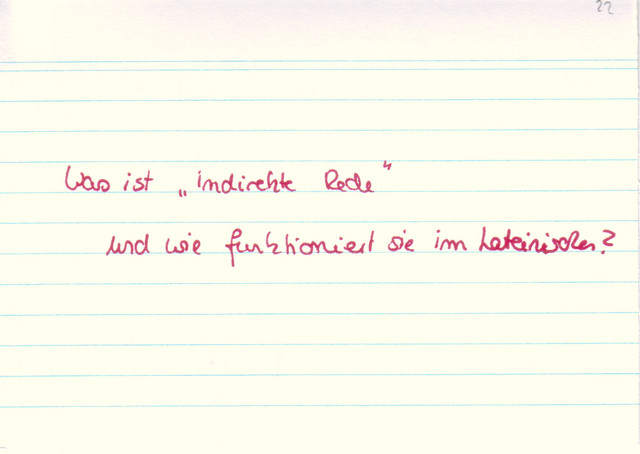 22
Was ist „indirekte Rede“
und wie funktioniert sie im Lateinischen?